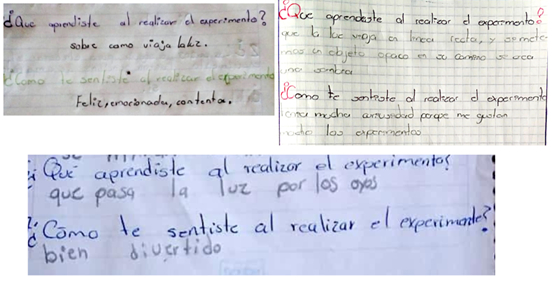 ¿Que aprendiste al realizar el experimento?
sobre como viaja la luz.
¿Como te sentiste al realizar el experimento
Feliz, emocionada, contenta.
¿Que aprendiste al realizar el experimento?
que la luz viaja en linea recta, y si mete
mos un objeto opaco en su camino se crea
una sombra
¿Como te sentiste al realizar el experimento
mucha curiosidad porque me gustan
mucho los experimentos
¿Qué aprendiste al realizar el experimento?
que pasa la luz por los ojos
2. ¿Cómo te sentiste al realizar el experimento?
bien divertido